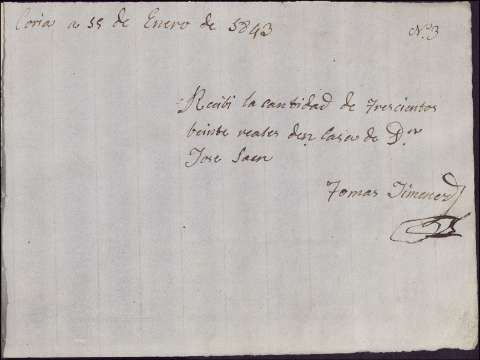 Coria a 11 de Enero de 1843
Nº 3
Recibi la cantidad de trescientos
beinte reales de casa de Dn
Jose Saen
Tomas Jimenez